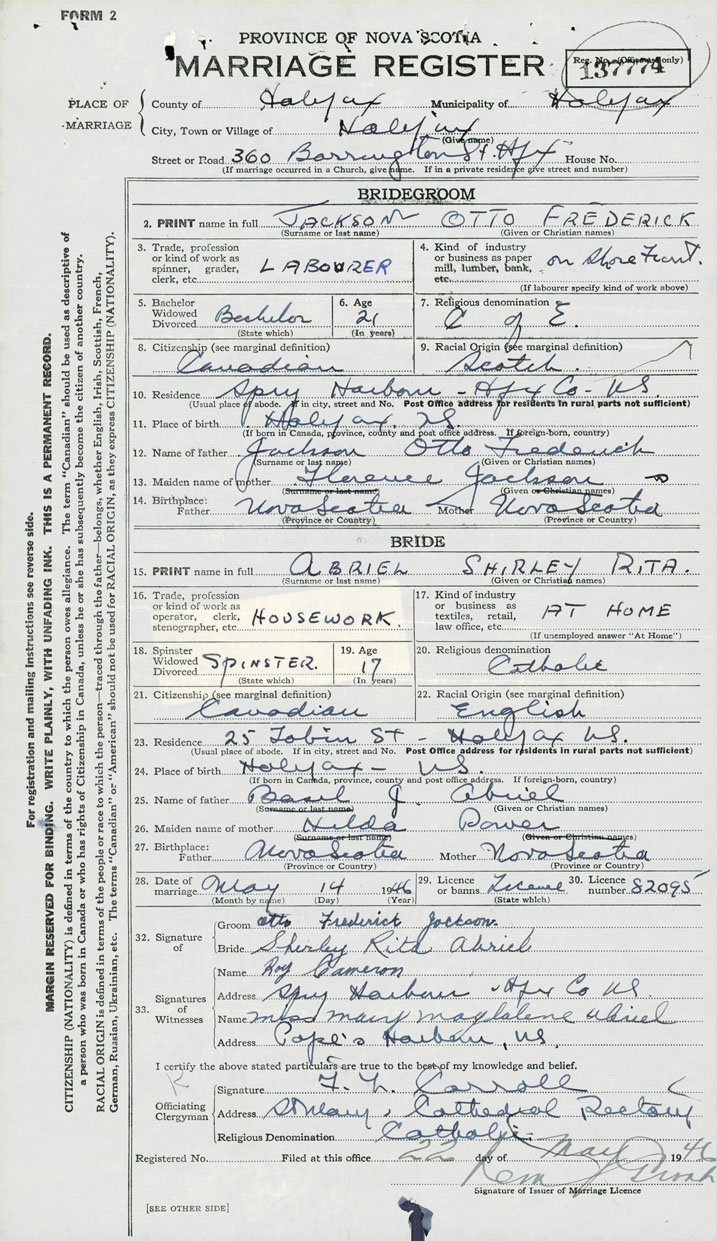 FORM 2
PROVINCE OF NOVA SCOTIA
MARRIAGE REGISTER
Reg. No. (Office use only)
137774
PLACE OF MARRIAGE
County of Halifax Municipality of Halifax
City, Town or Village of Halifax
(Give name)
Street or Road 360 Barrington St. Hfx House No.
(If marriage occurred in a Church, give name. If in a private residence give street and number)
BRIDEGROOM
2. PRINT name in full JACKSON OTTO FREDERICK
(Surname or last name) (Given or Christian names)
3. Trade, profession or kind of work as spinner, grader, clerk, etc. LABOURER
4. Kind of industry or business as paper mill, lumber, bank, etc. on Shore Front.
(If labourer specify kind of work above)
5. Bachelor Widowed Divorced Bachelor
(State which)
6. Age 21
(In years)
7. Religious denomination C of E.
8. Citizenship (see marginal definition) Canadian
9. Racial Origin (see marginal definition) Scotch
10. Residence Spry Harbour - Hfx Co - NS.
(Usual place of abode. If in city, street and No. Post Office address for residents in rural parts not sufficient)
11. Place of birth Halifax, NS.
(If born in Canada, province, county and post office address. If foreign-born, country)
12. Name of father Jackson Otto Frederick
(Surname or last name) (Given or Christian names)
13. Maiden name of mother Florence Jackson
(Surname or last name) (Given or Christian names)
14. Birthplace: Father Nova Scotia Mother Nova Scotia
(Province or Country) (Province or Country)
BRIDE
15. PRINT name in full ABRIEL SHIRLEY RITA.
(Surname or last name) (Given or Christian names)
16. Trade, profession or kind of work as operator, clerk, stenographer, etc. HOUSEWORK.
17. Kind of industry or business as textiles, retail, law office, etc. AT HOME
(If unemployed answer "At Home")
18. Spinster Widowed Divorced SPINSTER.
(State which)
19. Age 17
(In years)
20. Religious denomination Catholic
21. Citizenship (see marginal definition) Canadian
22. Racial Origin (see marginal definition) English
23. Residence 25 Tobin St - Halifax NS.
(Usual place of abode. If in city, street and No. Post Office address for residents in rural parts not sufficient)
24. Place of birth Halifax - NS.
(If born in Canada, province, county and post office address. If foreign-born, country)
25. Name of father Basil J. Abriel
(Surname or last name) (Given or Christian names)
26. Maiden name of mother Hilda Power
(Surname or last name) (Given or Christian names)
27. Birthplace: Father Nova Scotia Mother Nova Scotia
(Province or Country) (Province or Country)
28. Date of marriage May 14 1946
(Month by name) (Day) (Year)
29. Licence or banns License
(State which)
30. Licence number 82095
32. Signature of
Groom otto Frederick Jackson.
Bride Shirley Rita Abriel
33. Signatures of Witnesses
Name Roy Cameron
Address Spry Harbour - Hfx Co NS.
Name miss mary magdalene Abriel
Address Pope's Harbour, NS.
I certify the above stated particulars are true to the best of my knowledge and belief.
Officiating Clergyman
Signature F. L. Carroll
Address St Mary's Cathedral Rectory
Religious Denomination Catholic
Registered No. Filed at this office 22 day of May 1946
Signature of Issuer of Marriage Licence
[SEE OTHER SIDE]
For registration and mailing instructions see reverse side.
MARGIN RESERVED FOR BINDING. WRITE PLAINLY, WITH UNFADING INK. THIS IS A PERMANENT RECORD.
CITIZENSHIP (NATIONALITY) is defined in terms of the country to which the person owes allegiance. The term "Canadian" should be used as descriptive of
a person who was born in Canada or who has rights of Citizenship in Canada, unless he or she has subsequently become the citizen of another country.
RACIAL ORIGIN is defined in terms of the people or race to which the person—traced through the father—belongs, whether English, Irish, Scottish, French,
German, Russian, Ukrainian, etc. The terms "Canadian" or "American" should not be used for RACIAL ORIGIN, as they express CITIZENSHIP (NATIONALITY).